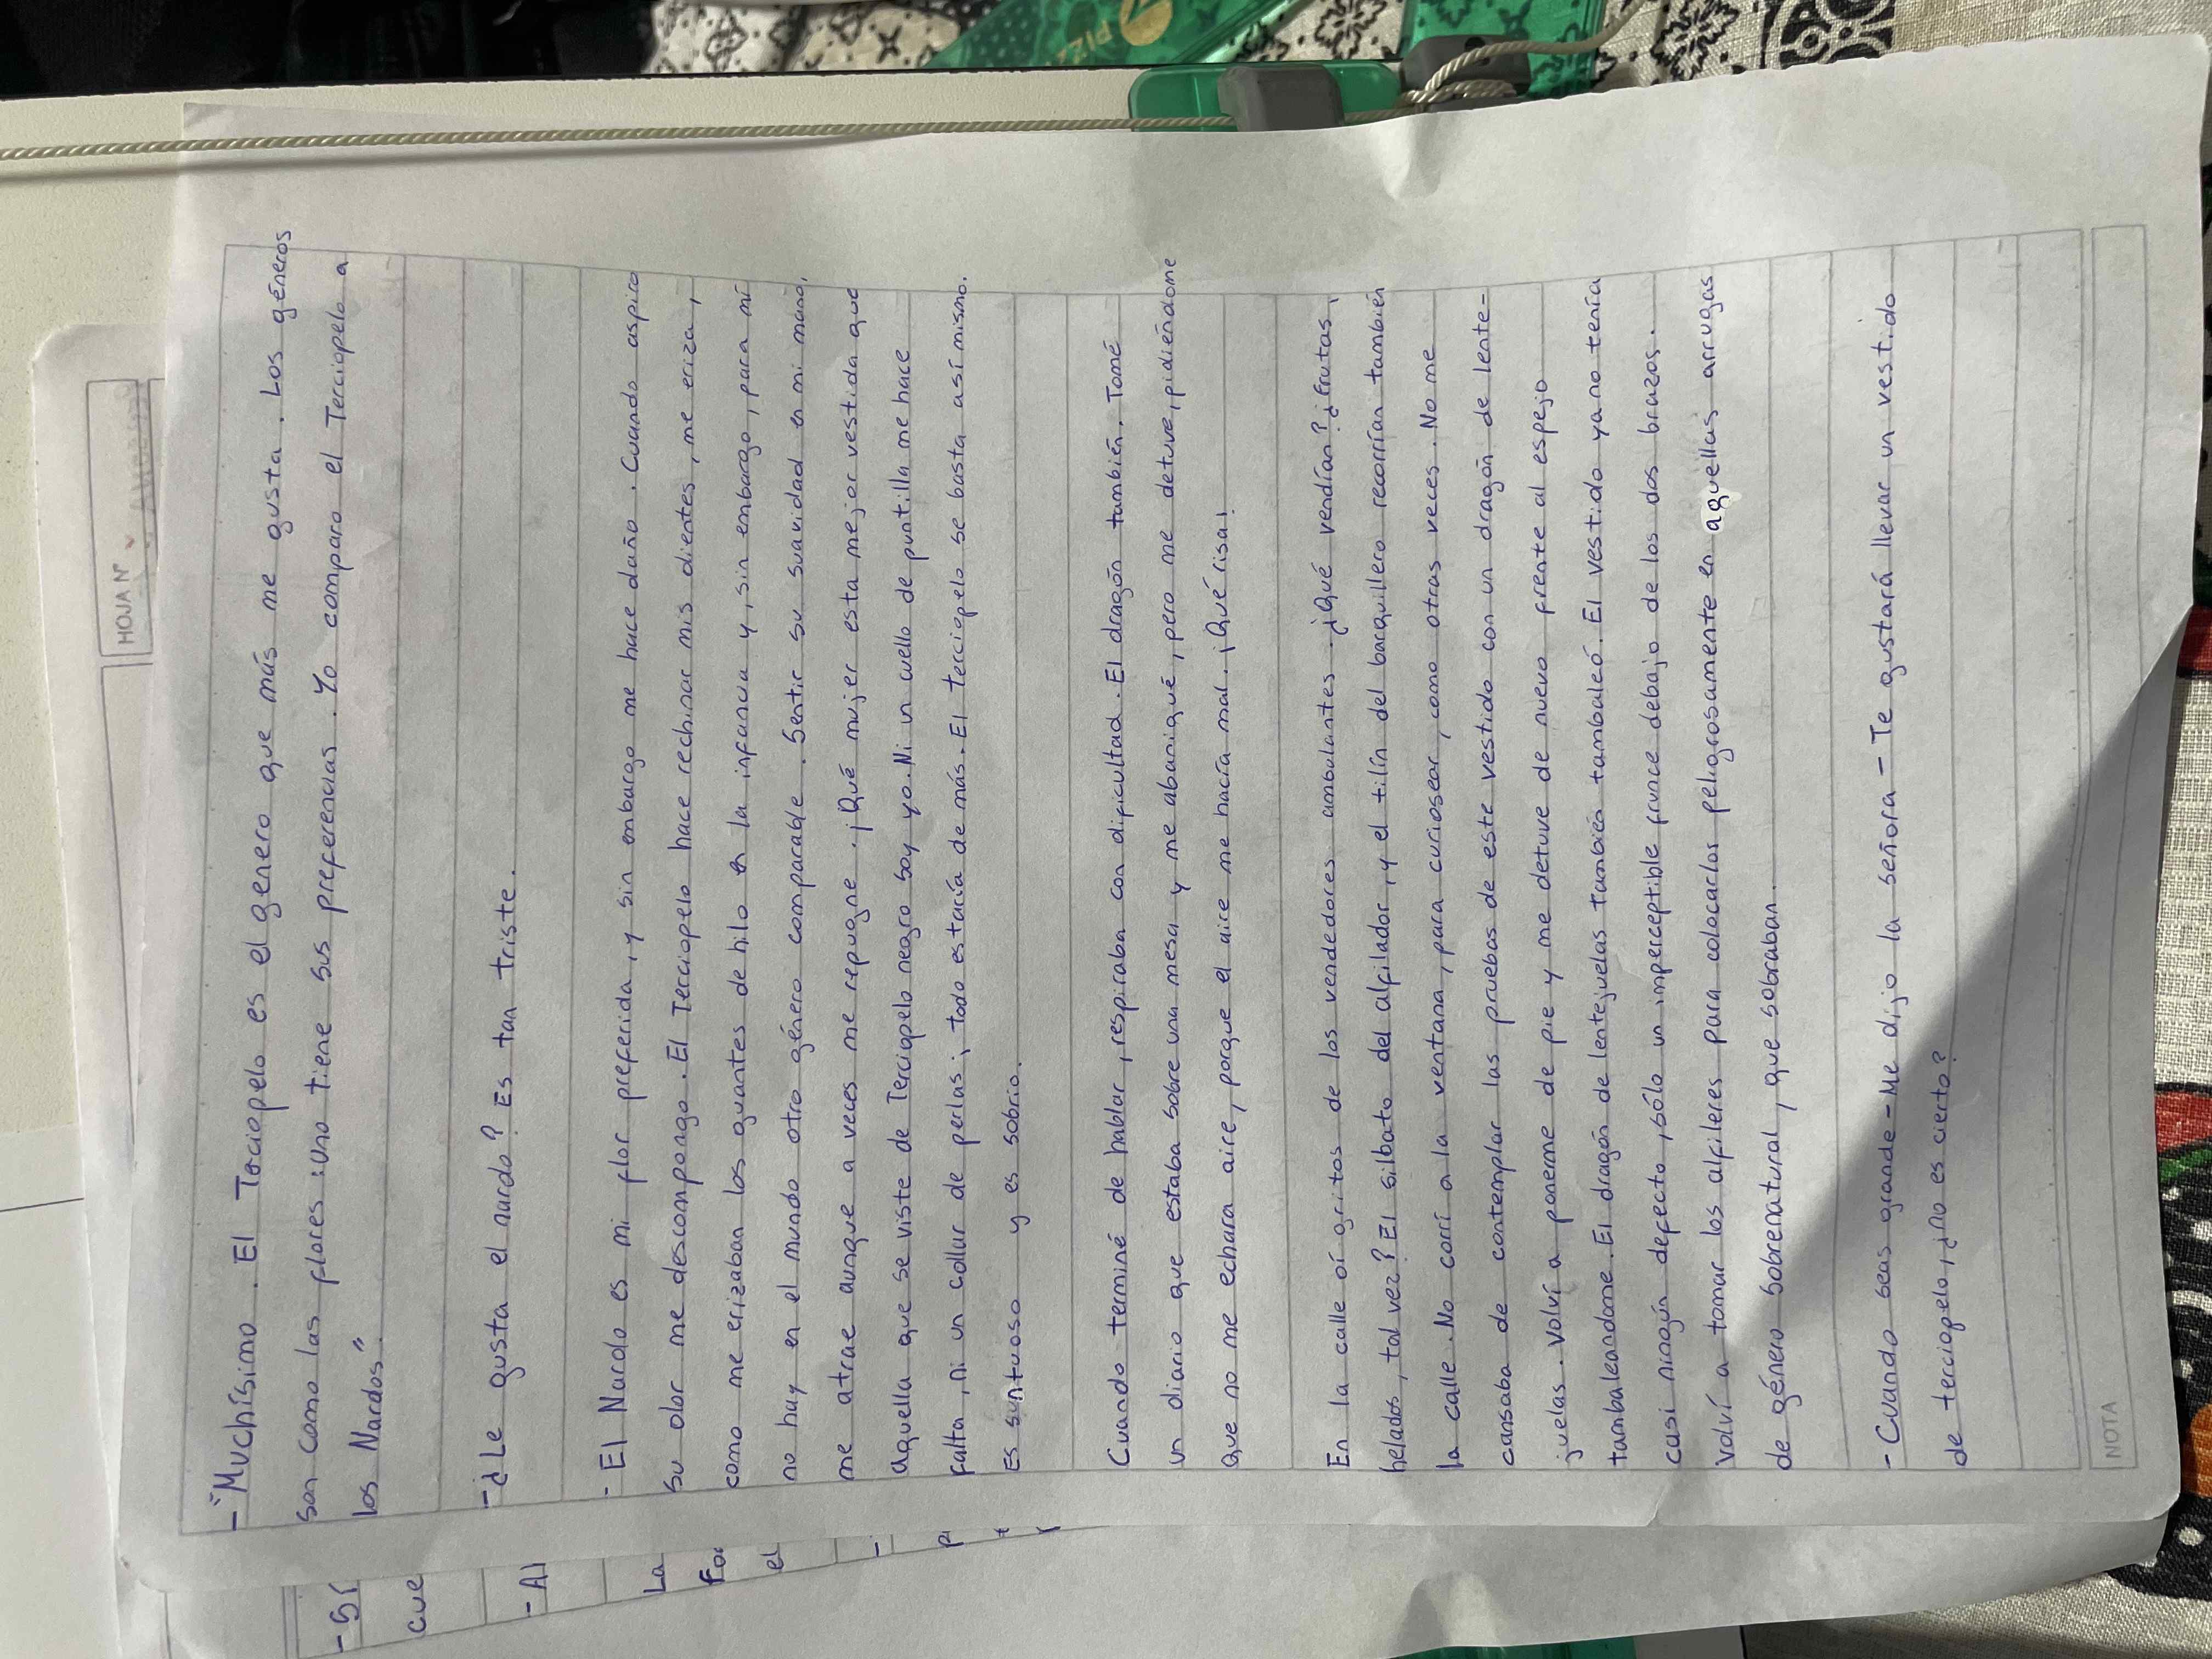 HOJA Nº
-"Muchísimo. El Terciopelo es el genero que más me gusta. Los géneros
son como las flores: uno tiene sus preferencias. Yo comparo el Terciopelo a
los Nardos"
-¿Le gusta el nardo? Es tan triste.
- El Nardo es mi flor preferida, y sin embargo me hace daño. Cuando aspiro
su olor me descompongo. El Terciopelo hace rechinar mis dientes, me eriza,
como me erizaban los guantes de hilo en la infancia y, sin embargo, para mí
no hay en el mundo otro género comparable. Sentir su suavidad en mi mano,
me atrae aunque a veces me repugne. ¡Qué mujer esta mejor vestida que
aquella que se viste de Terciopelo negro soy yo. Ni un cuello de puntilla me hace
falta, ni un collar de perlas; todo estaría de más. El terciopelo se basta así mismo.
Es suntuoso y es sobrio.
Cuando terminé de hablar, respiraba con dificultad. El dragón también. Tomé
un diario que estaba sobre una mesa y me abaniqué, pero me detuve, pidiéndome
que no me echara aire, porque el aire me hacía mal. ¡Qué risa!
En la calle oí gritos de los vendedores ambulantes. ¿Qué vendían? ¿Frutas,
helados, tal vez? El silbato del alfilador, y el tilín del barquillero recorrían también
la calle. No corrí a la ventana, para curiosear, como otras veces. No me
cansaba de contemplar las pruebas de este vestido con un dragón de lente-
juelas. Volví a ponerme de pie y me detuve de nuevo frente al espejo
tambaleandome. El dragón de lentejuelas también tambaleó. El vestido ya no tenía
casi ningún defecto, sólo un imperceptible frunce debajo de los dos brazos.
Volví a tomar los alfileres para colocarlos peligrosamente en aquellas arrugas
de género sobrenatural, que sobraban.
-Cuando seas grande - Me dijo la señora - Te gustará llevar un vestido
de terciopelo, ¿no es cierto?
NOTA
- Sí
cue
- Al
La
Fo
el
-
PIZ